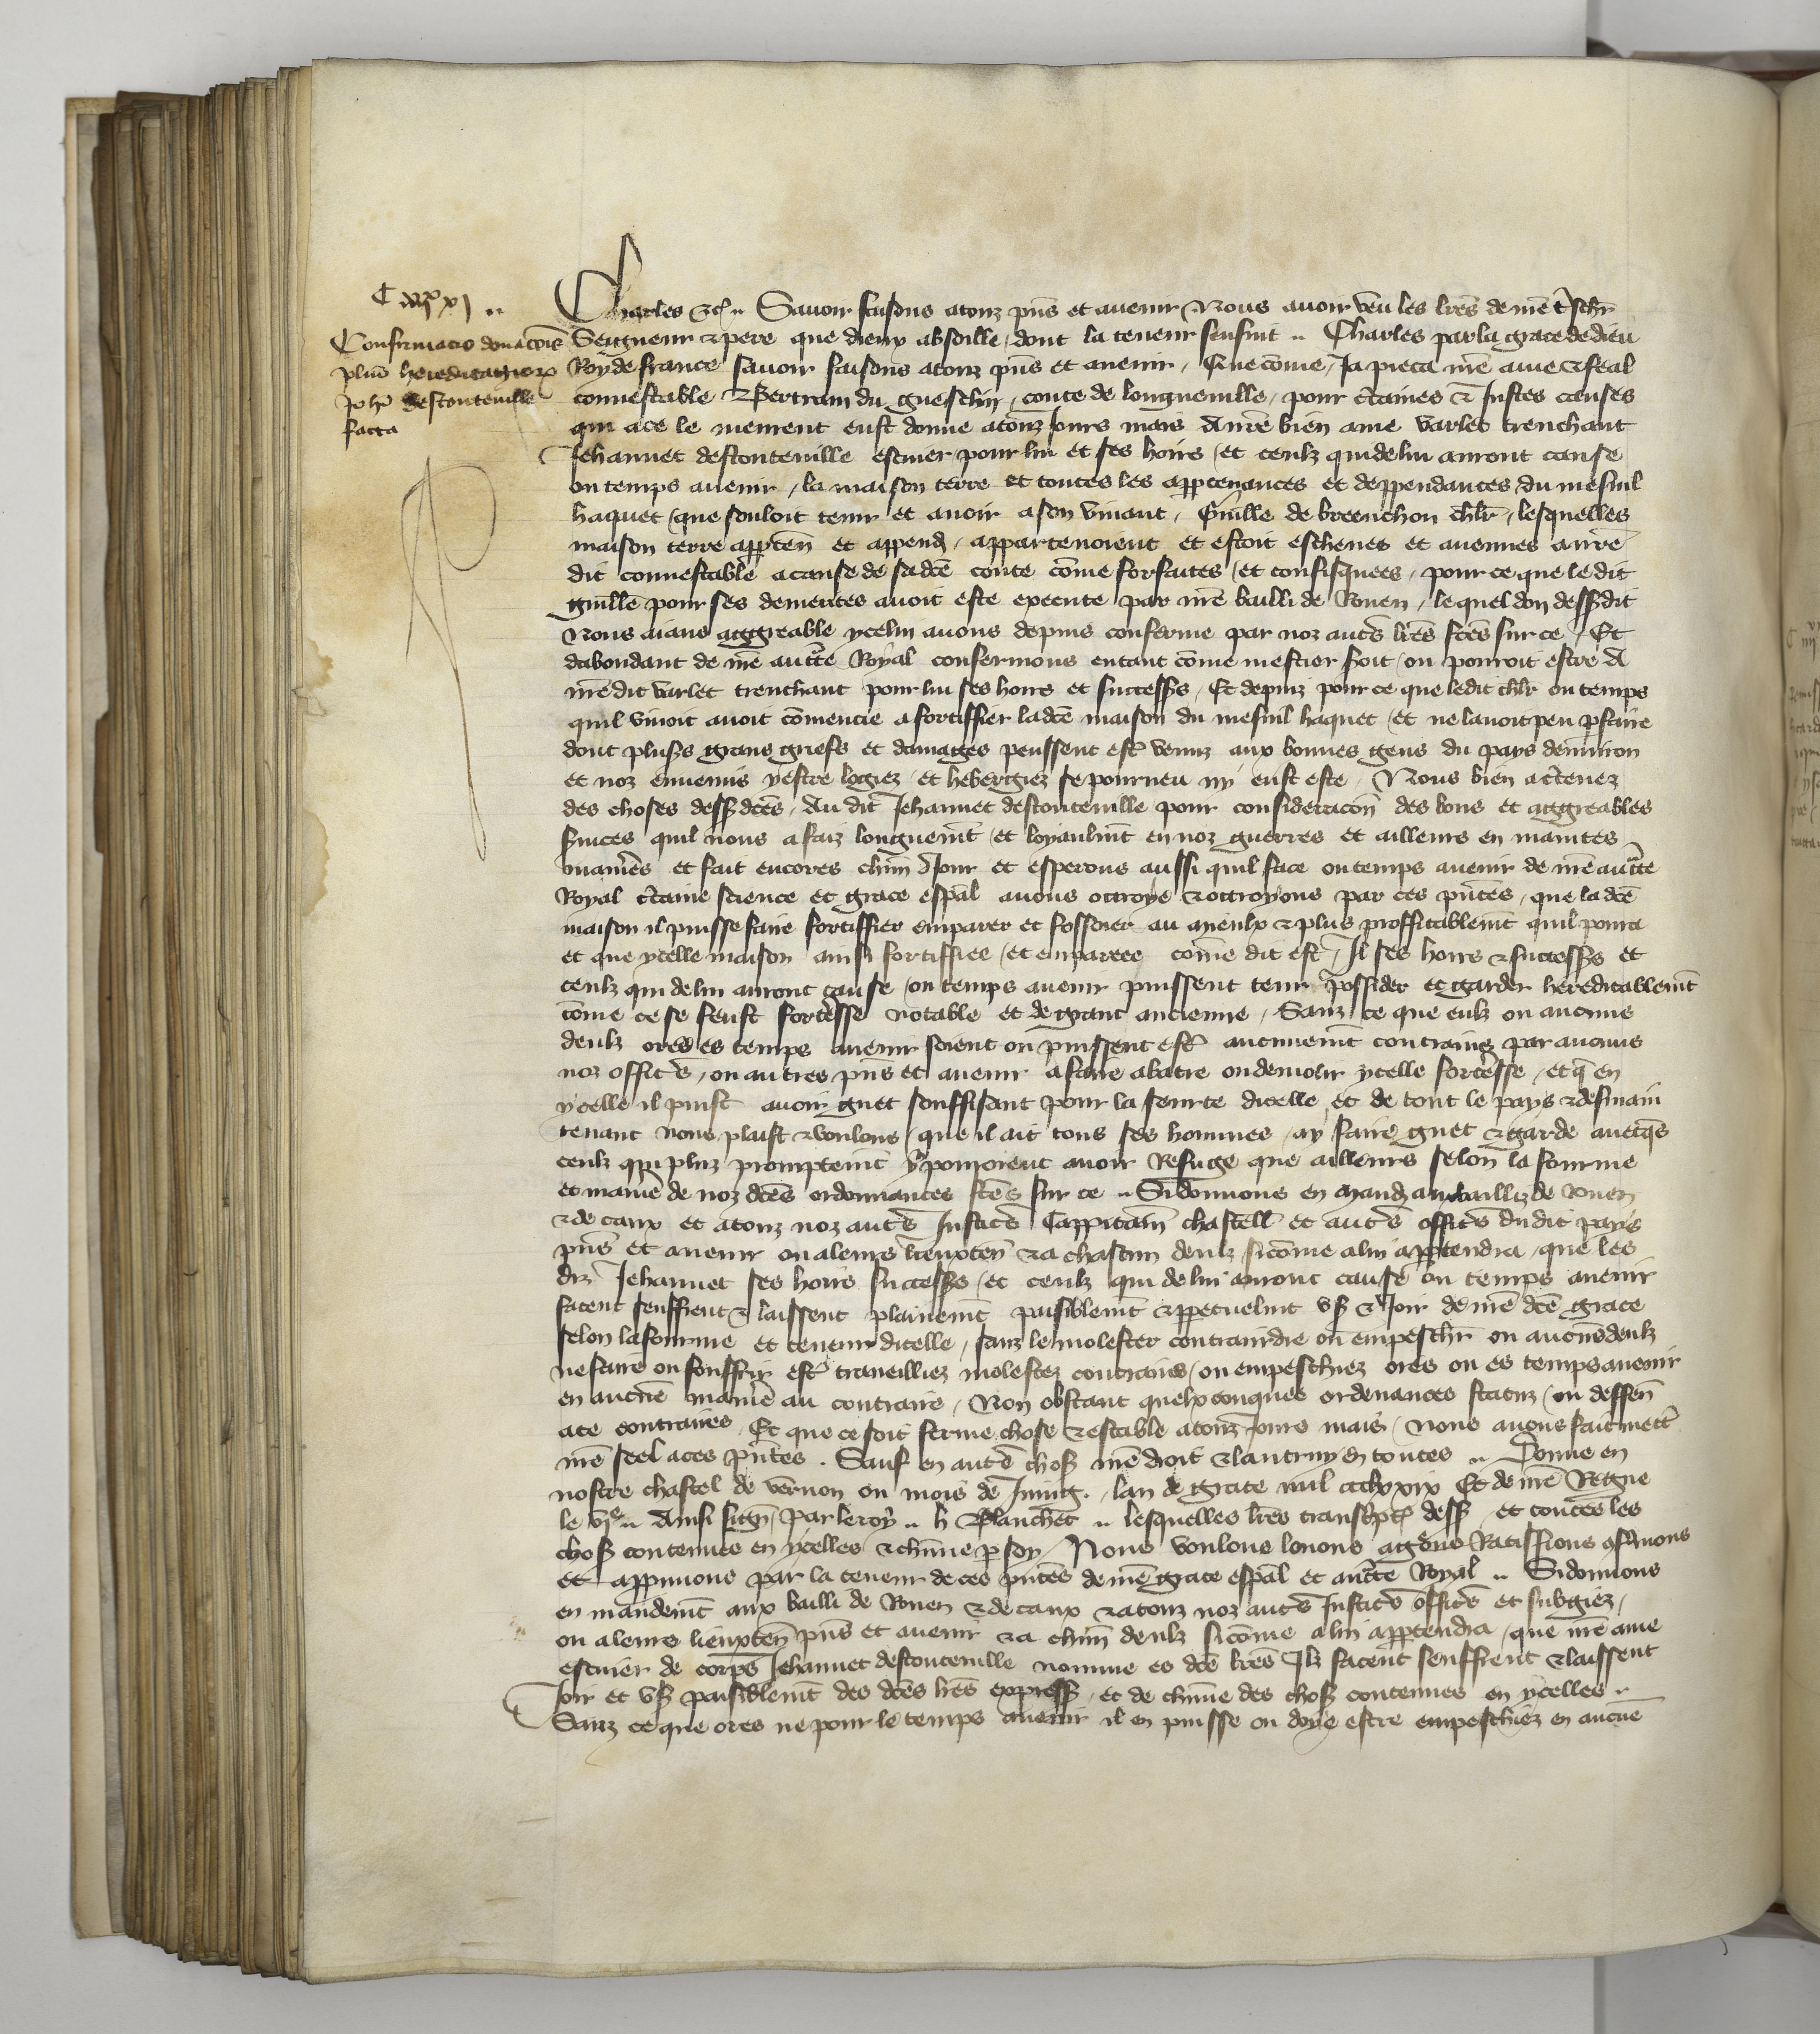 Confirmacio donacois
pluriu hereditagiorx
Johi destouteville
facta
Charles &c Savoir faisons atouz pns et avenir Nous avoir veu les lres de nre tschr
Seigneur & pere que dieux absoille dont la teneur sensuit Charles par la grace de dieu
Roy de france Savoir faisons atouz pns et avenir Que come Ja pieca nre ame & feal
connestable Bertran du guesclin conte de longueville pour ctaines & Justes causes
qui ace le murent eust donne atouz Jours mais A nre bien ame varlet trenchant
Jehannet destouteville escuier pour lui et ses hoirs et ceulx qui de lui auront cause
ou temps avenir la maison terre et toutes les apptenances et deppendances du mesnil
haquet que souloit tenir et avoir a son vivant Guille de breenchon chlr lesquelles
maison terre apparten et append appartenoient et estoit escheues et avenues a nre
dit connestable a cause de sa dce conte come forfaites et confisquees pour ce que le dit
guille pour ses demerites avoit este execute par nre bailli de Rouen lequel don dessdit
Nous aians aggreable ycelui avons depuis conferme par noz autres lres fces sur ce Et
dabondant de nre aucte Royal confermons entant come mestier soit ou pourroit estre A
nre dit varlet trenchant pour lui ses hoirs et success Et depuis pour ce que ledit chlr ou temps
quil vivoit avoit comencie a fortiffier ladce maison du mesnil haquet et ne lavoit peu pfaire
dont pluss grans griefs et damages peussent est venuz aux bonnes gens du pays denviron
et noz ennemis y estre logiez et hebergiez se pourveu ny eust este Nous bien actenez
des choses dessdces Au dit Jehannet destouteville pour consideracon des bons et aggreables
svices quil nous a faiz longuemt et loyaulmt en noz guerres et ailleurs en maintes
manies et fait encores chun Jour et esperons aussi quil face ou temps avenir de nre aucte
Royal ctaine science et grace espal avons ottroye & ottroyons par ces pntes que ladce
maison il puisse faire fortiffier emparer et fossoier au mieulx & plus proffitablemt quil pourra
et que ycelle maison ainsi fortiffiee et emparee come dit est Il ses hoirs & success et
ceulx qui de lui auront cause ou temps avenir puissent tenir possider et garder hereditablemt
come ce se feust forteresse notable et de grant ancienne Sanz ce que eulx ou aucuns
deulx ores es temps avenir soient ou puissent est aucunemt contrains par aucuns
noz offices ou autres pns et avenir a faire abatre ou demolir ycelle forteresse et q en
ycelle il puist avoir guet souffisant pour la seurte dicelle et de tout le pays & desmain
tenant nous plaist & voulons que il ait tous ses hommes ay faire guet & garde avecqs
ceulx qui plus promptemt y pourroient avoir Refuge que ailleurs selon la fourme
et manie de noz dces ordonnances fces sur ce Si donnons en mand aux bailliz de Rouen
& de caux et atouz noz autres Justices Cappitain chastell et autres offices du dit pays
pns et avenir ou aleurs lieuxten & a chascun deulx sicome a lui apptendra que les
diz Jehannet ses hoirs success et ceulx qui de lui auront cause ou temps avenir
facent seuffrent & laissent plainemt paisiblemt & ppetuelmt us & Joir de nre dce grace
selon la fourme et teneur dicelle sanz le molester contraindre ou empeschr ou aucuns deulx
ne faire ou souffrir est traveilliez molestez contrains ou empeschiez ores ou es temps avenir
en aucune manie au contraire Non obstant quelxconques ordenances statuz ou deffen
ace contraires Et que ce soit ferme chose & estable atouz jours mais Nous avons fait mett
nre seel a ces pntes Sauf en autres chos nre droit & lautruy en toutes Donne en
nostre chastel de vernon ou mois de Juing lan de grace mil ccclxxix Et de nre Regne
le Ainsi sign Par le roy h Blanchet lesquelles lres transcpt dess et toutes les
chos contenues en ycelles & chune p soy Nous voulons louons aggrons Ratiffions confmons
et appuvons par la teneur de ces pntes de nre grace espal et aucte Royal Si donnons
en mandemt aux bailli de Rouen & de caux & atouz noz autres Justices offices et subgiez
ou aleurs lieuxten pns et avenir & a chun deulx sicome a lui apptendra que nre ame
escuier de corps Jehannet destouteville nomme es dce lres Ilz facent seuffrent & laissent
Joir et us paisiblemt des dces lres express et de chune des chos contenues en ycelles
Sanz ce que ores ne pour le temps avenir il en puisse ou doye estre empeschiez en aucune